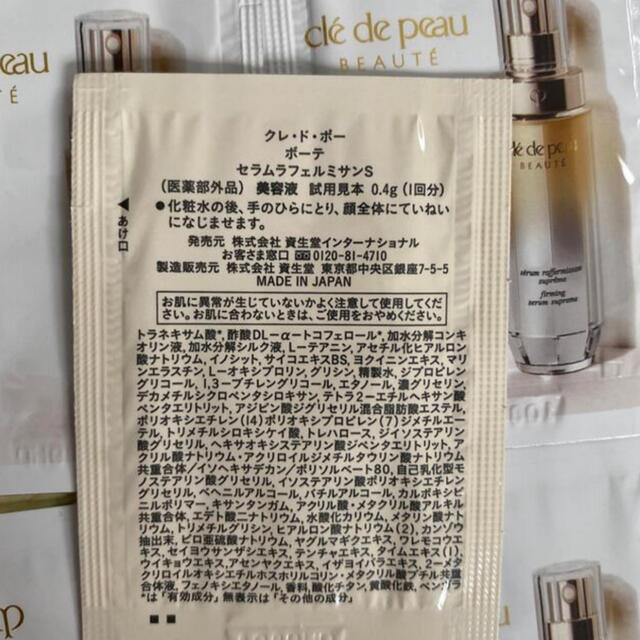 clé de peau
BEAUTÉ
eau
TÉ
clé de peau
BEAUTÉ
sérum raffermissant
suprême
firming
serum supreme
クレ・ド・ポー
ボーテ
セラムラフェルミサンS
(医薬部外品) 美容液 試用見本 0.4g (1回分)
●化粧水の後、手のひらにとり、顔全体にていねい
になじませます。
発売元 株式会社 資生堂インターナショナル
お客さま窓口 0120-81-4710
製造販売元 株式会社 資生堂 東京都中央区銀座7-5-5
MADE IN JAPAN
◀あけ口
お肌に異常が生じていないかよく注意して使用してくだ
さい。お肌に合わないときは、ご使用をおやめください。
トラネキサム酸*, 酢酸DL-α-トコフェロール*, 加水分解コンキ
オリン液, 加水分解シルク液, L-テアニン, アセチル化ヒアルロン
酸ナトリウム, イノシット, サイコエキスBS, ヨクイニンエキス, マリ
ンエラスチン, L-オキシプロリン, グリシン, 精製水, ジプロピレン
グリコール, 1,3-ブチレングリコール, エタノール, 濃グリセリン,
デカメチルシクロペンタシロキサン, テトラ2-エチルヘキサン酸
ペンタエリトリット, アジピン酸ジグリセリル混合脂肪酸エステル,
ポリオキシエチレン(14)ポリオキシプロピレン(7)ジメチルエー
テル, トリメチルシロキシケイ酸, トレハロース, ジイソステアリン
酸グリセリル, ヘキサオキシステアリン酸ジペンタエリトリット, ア
クリル酸ナトリウム・アクリロイルジメチルタウリン酸ナトリウム
共重合体/イソヘキサデカン/ポリソルベート80, 自己乳化型モ
ノステアリン酸グリセリル, イソステアリン酸ポリオキシエチレン
グリセリル, ベヘニルアルコール, バチルアルコール, カルボキシビ
ニルポリマー, キサンタンガム, アクリル酸・メタクリル酸アルキル
共重合体, エデト酸二ナトリウム, 水酸化カリウム, メタリン酸ナト
リウム, トリメチルグリシン, ヒアルロン酸ナトリウム(2), カンゾウ
抽出末, ピロ亜硫酸ナトリウム, ヤグルマギクエキス, ワレモコウエ
キス, セイヨウサンザシエキス, テンチャエキス, タイムエキス(1),
ウイキョウエキス, アセンヤクエキス, イザヨイバラエキス, 2-メタ
クリロイルオキシエチルホスホリルコリン・メタクリル酸ブチル共重
合体液, フェノキシエタノール, 香料, 酸化チタン, 黄酸化鉄, ベンガラ
*は「有効成分」無表示は「その他の成分」